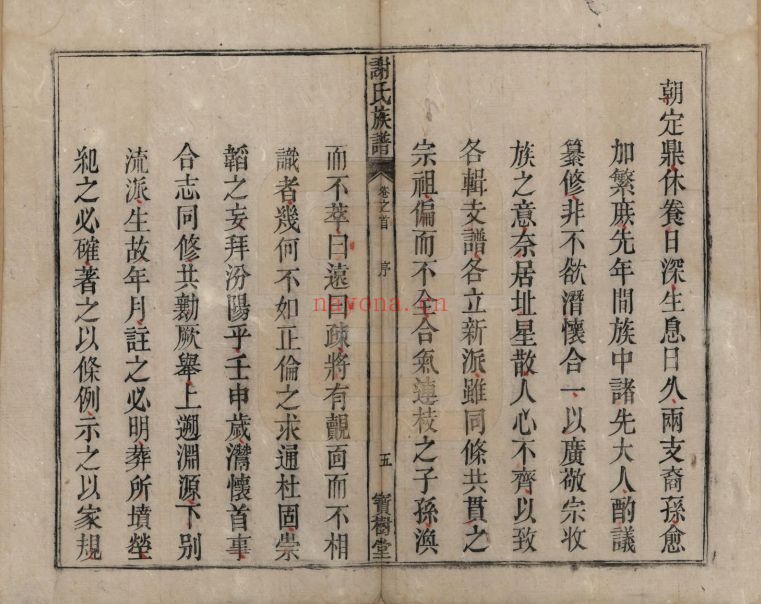 朝定鼎休養日深生息日久兩支裔孫愈
加繁廡先年間族中諸先大人酌議
纂修非不欲潛懷合一以廣敬宗收
族之意奈居址星散人心不齊以致
各輯支譜各立新派雖同條共貫之
宗祖偏而不全合氣連枝之子孫渙
謝氏族譜 卷之首 序 五 寳樹堂
而不萃日遠日疎將有覿面而不相
識者幾何不如正倫之求通杜固崇
韜之妄拜汾陽乎壬申歲灊懷首事
合志同修共勷厥舉上遡淵源下别
流派生故年月註之必明葬所墳塋
紀之必確著之以條例示之以家規